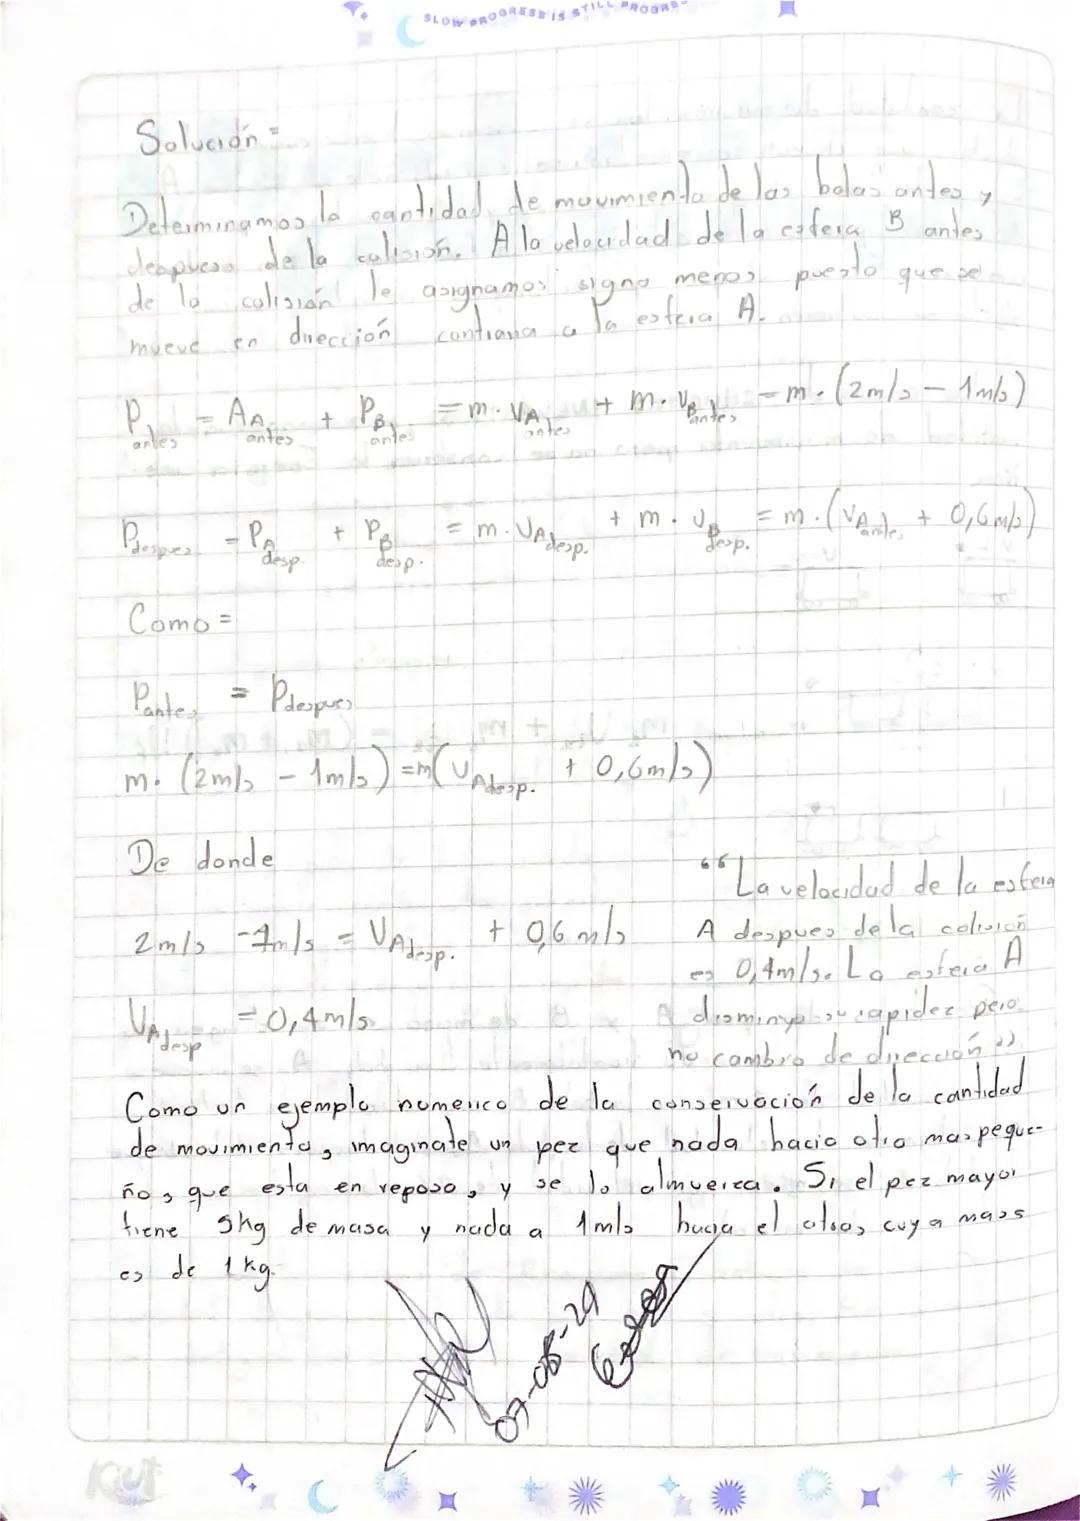 SLOW PROGRESS IS STILL PROGRES
Solución =
Determinamos la cantidad de movimiento de las bolas antes y
despues de la colisión. A la velocidad de la esfera B antes
de la colisión le asignamos signo menos puesto que se
mueve en dirección contraria a la esfera A.
P antes = A A antes + P B antes = m. V A antes + m. V B antes = m. (2m/s - 1m/s)
P despues = P A desp. + P B desp. = m. V A desp. + m. V B desp. = m. (V A antes + 0,6m/s)
Como =
P antes = P despues
m. (2m/s - 1m/s) = m (V A desp. + 0,6m/s)
De donde
2m/s - 1m/s = V A desp. + 0,6 m/s
V A desp = 0,4m/s
"La velocidad de la esfera
A despues de la colisión
es 0,4m/s. La esfera A
disminyo su rapidez pero
no cambio de dirección"
Como un ejemplo numerico de la conservación de la cantidad
de movimiento, imaginate un pez que nada hacia otro mas peque-
ño, que esta en reposo, y se lo almuerza. Si el pez mayor
tiene 5kg de masa y nada a 1m/s hacia el otro, cuya mass
es de 1kg.
07-08-29
Kiut